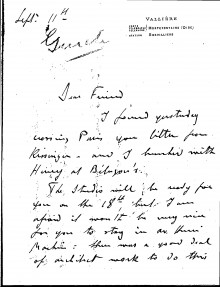 Sept. 11th
VALLIÈRE
MORTEFONTAINE (OISE)
Dear Friend
I found yesterday
crossing Paris your letter from
Kissingen - and I lunched with
Henry at
The Studio will be ready for
you on the 18th but I am
afraid it won't be very nice
for you to stay in
there was a good deal
of architect work to do this